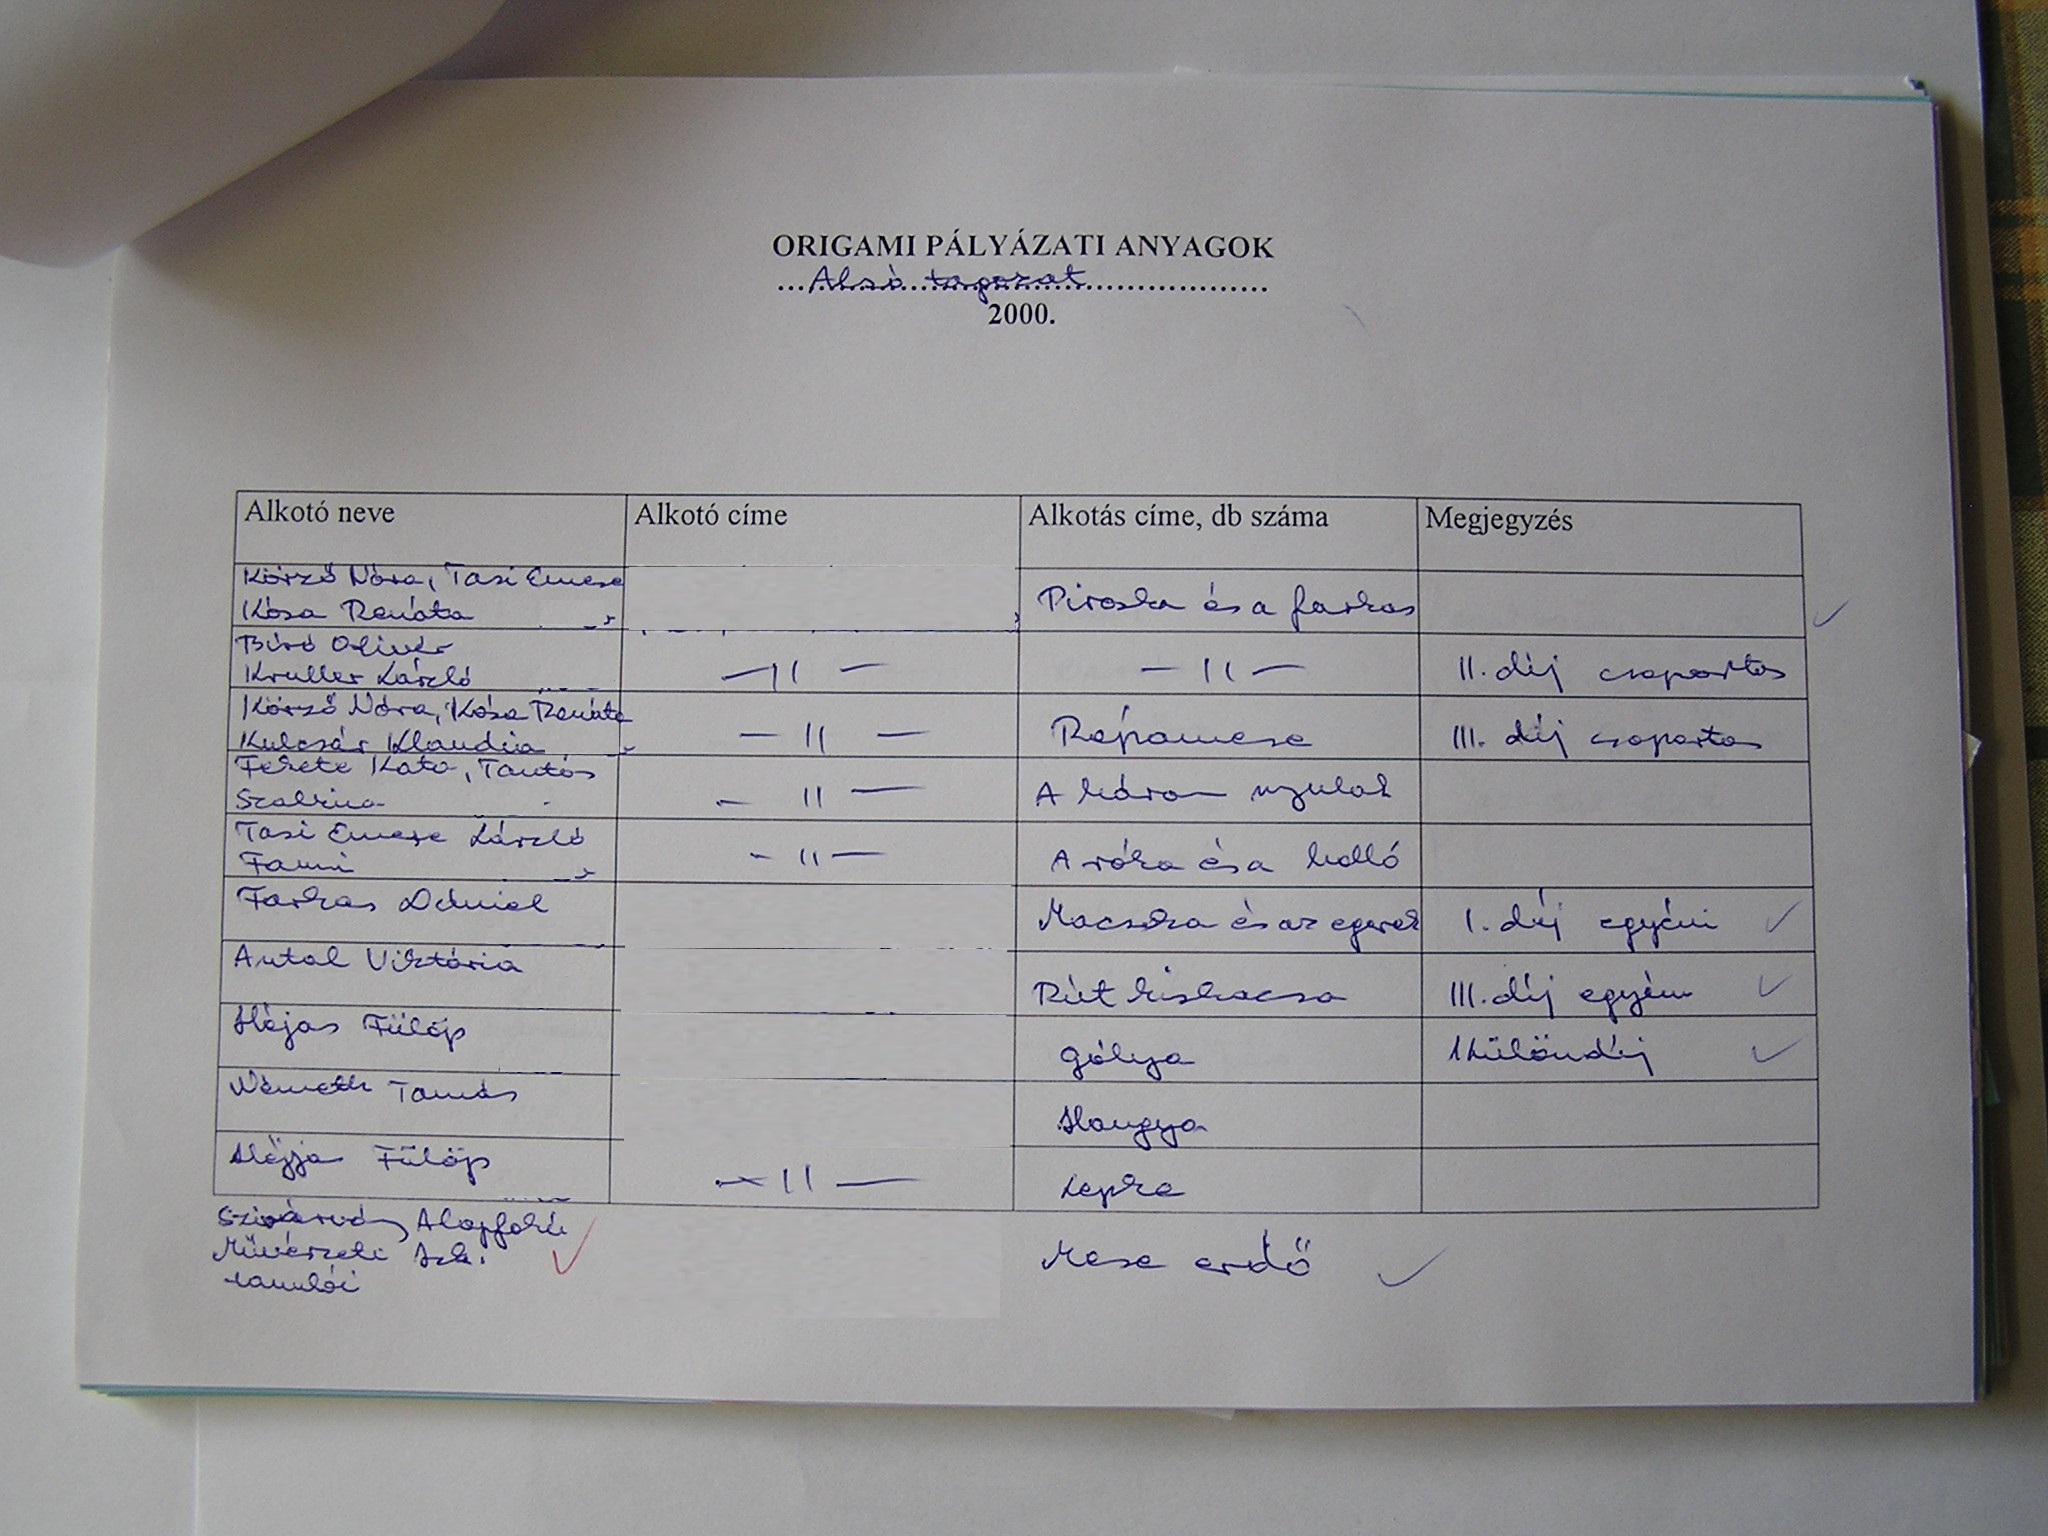 ORIGAMI PÁLYÁZATI ANYAGOK
...Alsó tagozat...
2000.
Alkotó neve Alkotó címe Alkotás címe, db száma Megjegyzés
Körző Nóra, Tasi Emese
Kósa Renáta Piroska és a farkas
Bíró Olivér
Kruller László —11— —11— II. díj csoportos
Körző Nóra, Kósa Renáta
Kulcsár Klaudia —11— Répamese III. díj csoportos
Fekete Kata, Tantós
Szabina —11— A három nyulak
Tasi Emese László
Fanni —11— A róka és a holló
Farkas Dániel Macska és az egerek I. díj egyéni
Antal Viktória Rút kiskacsa III. díj egyéni
Héjas Fülöp gólya Különdíj
Németh Tamás Hangya
Héjja Fülöp —11— Lepke
Szivárvány Alapfokú
Művészeti Isk. Mese erdő
tanulói